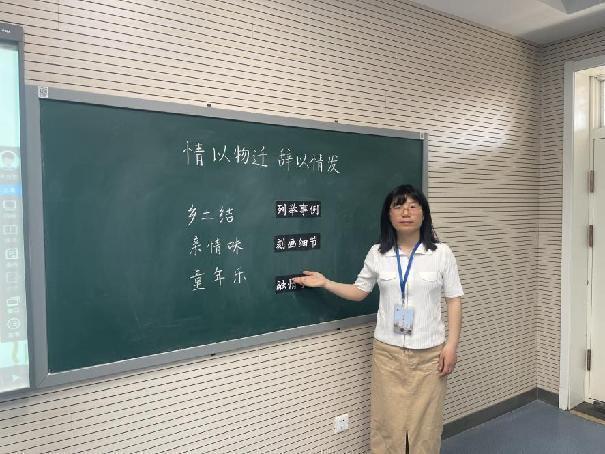 情以物迁 辞以情发
乡土结 列举事例
亲情味 刻画细节
童年乐 融情